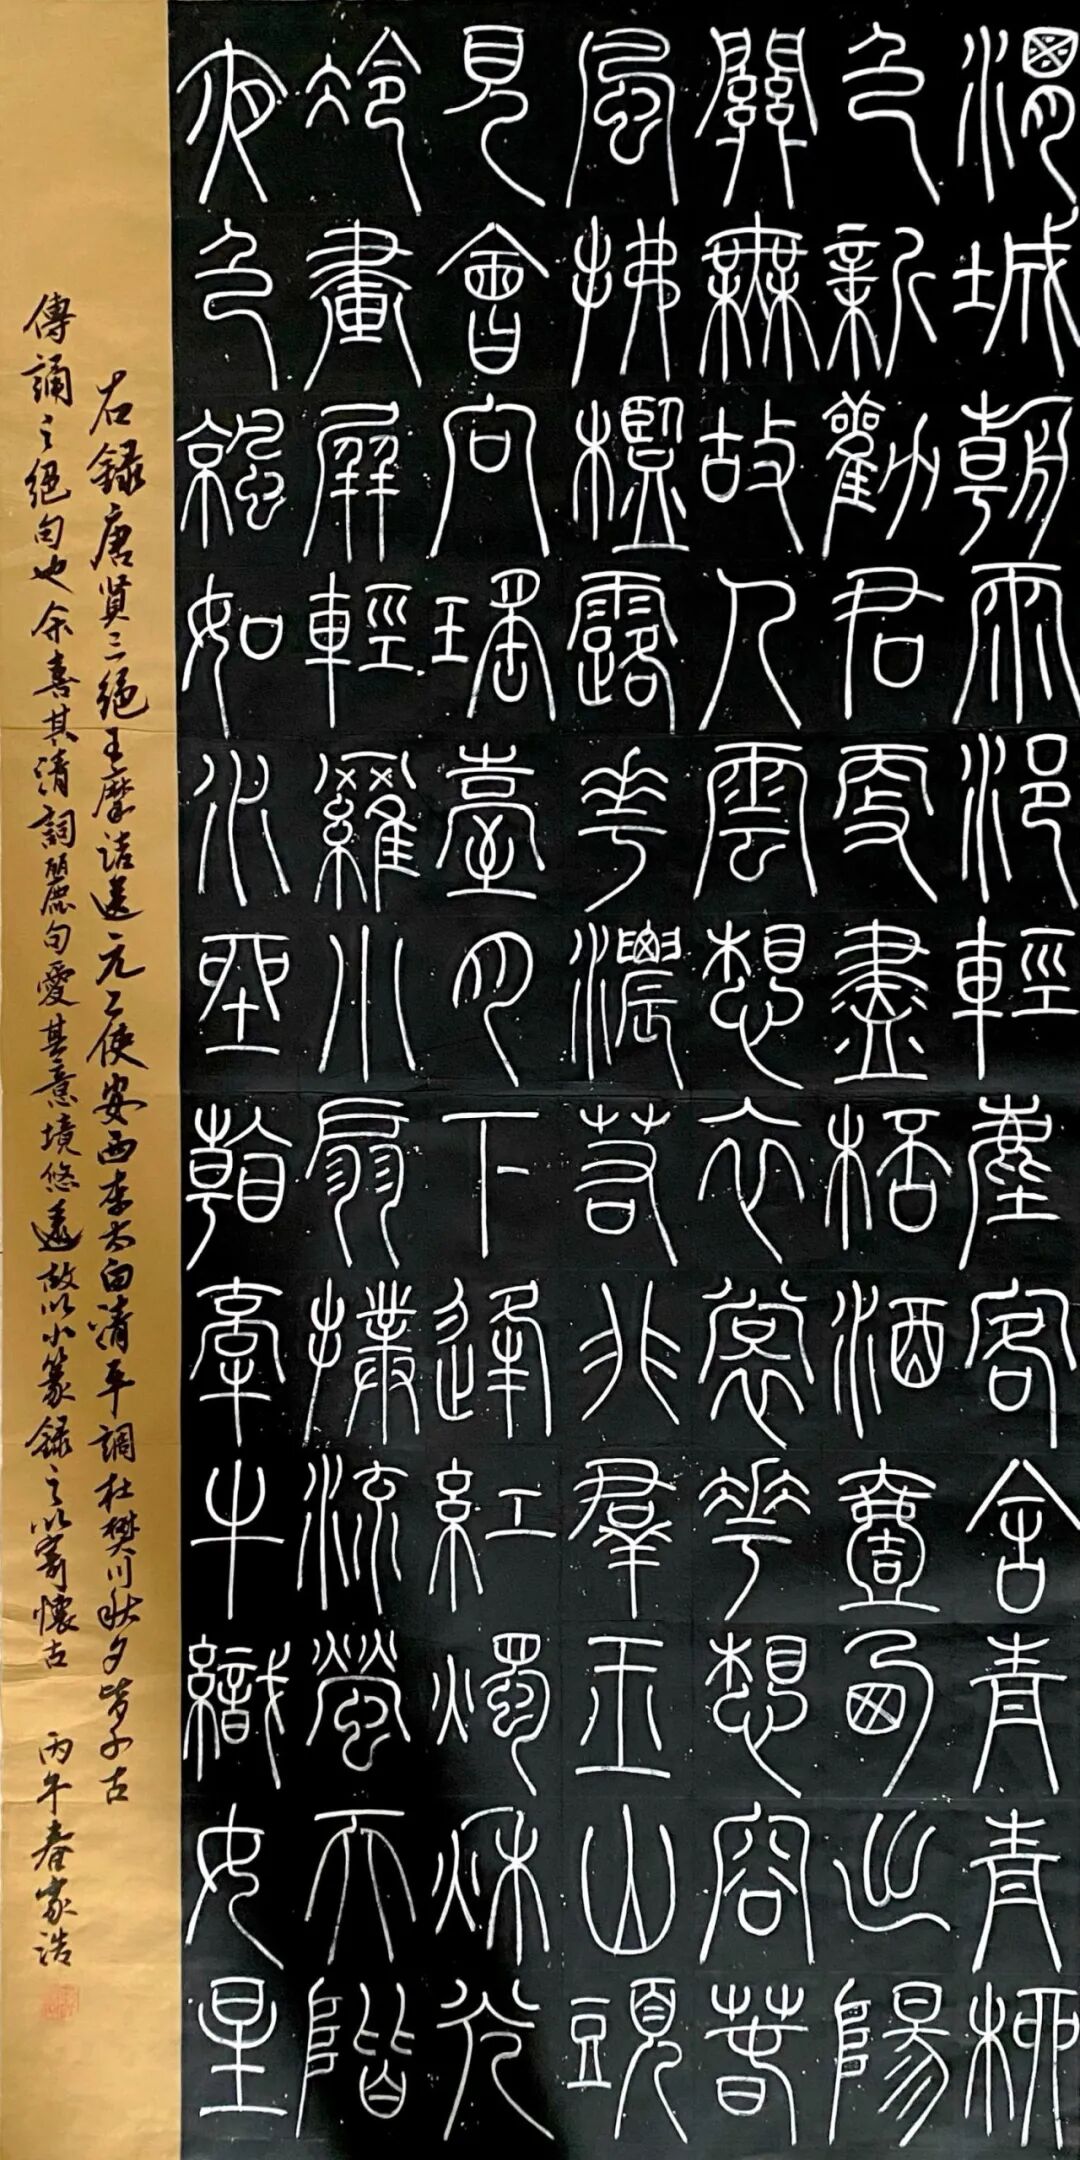 渭城朝雨浥輕塵客舍青青柳
色新勸君更盡桮酒壹西出陽
關無故人雲想衣裳花想容春
風拂檻露花濃若非羣玉山頭
見會向瑤臺月下逢紅燭秋光
冷畫屏輕羅小扇撲流螢天階
夜色涼如水坐看牽牛織女星
右錄唐賢三絕王摩詰送元二使安西李太白清平調杜樊川秋夕皆千古
傳誦之絕句也余喜其清詞麗句愛其意境悠遠故以小篆錄之以寄懷古 丙午春家浩